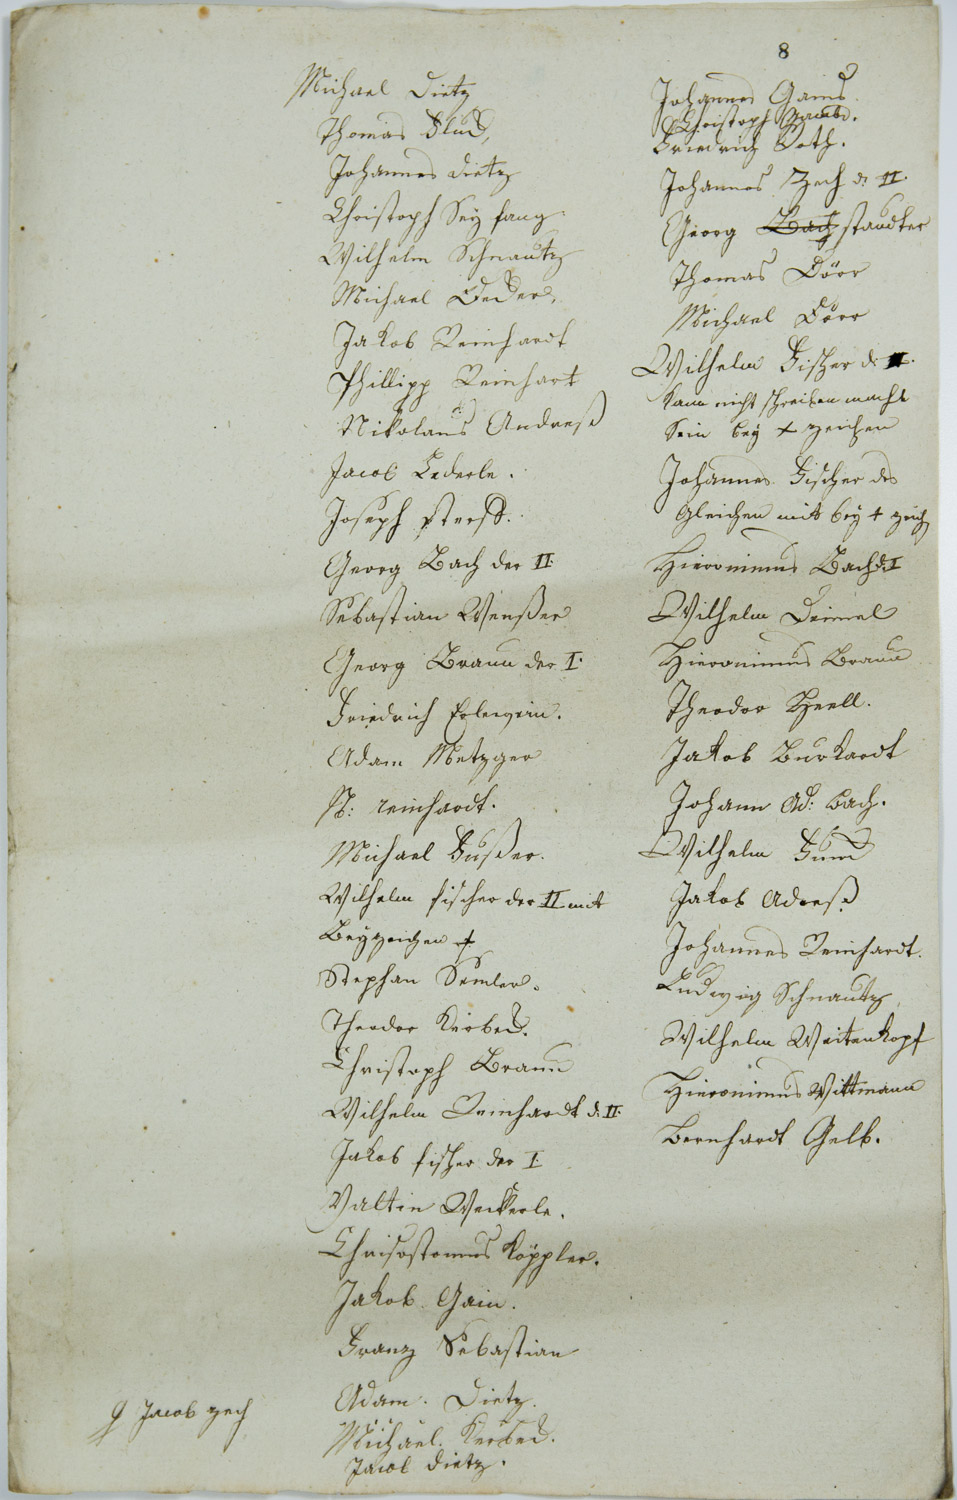 8
Michael Dietz
Thomas
Johannes Dietz
Christoph Seyfang
Wilhelm Schnautz
Michael
Jakob Reinhardt
Phillipp Reinhart
Nikolaus Andreß
Jacob Lederle.
Joseph
Georg Bach der II
Sebastian
Georg Braun der I.
Friedrich Erlewein.
Adam Metzger
reinhardt.
Michael Fußer.
Wilhelm fischer der II mit
Beyzeichen +
Stephan Semler.
Theodor
Christoph Braun
Wilhelm Reinhardt d. II.
Jakob fischer der I
Valtin Weckerle.
Chrisostomus Köppler.
Jakob Gain.
Franz Sebastian
Adam. Dietz.
Michael.
Jacob Dietz.
Jacob zech
Johannes Gans.
Christoph
Friedrich Roth.
Johannes Zech d. II.
Georg Bach staudter
Thomas Dörr
Michael Dörr
Wilhelm Fischer d. II.
Kann nicht schreiben macht
Sein bey + zeichen
Johannes Fischer des
gleichen mit bey + zeich
Hieronimus Bach d. I
Wilhelm Deimel
Hieronimus Braun
Theodor Hell.
Jakob Burkardt
Johann Ad: Bach.
Wilhelm
Jakob Adreß
Johannes Reinhardt.
Ludwig Schnautz,
Wilhelm Weitenkopf
Hieronimus Wittmann
Bernhardt Gelb.